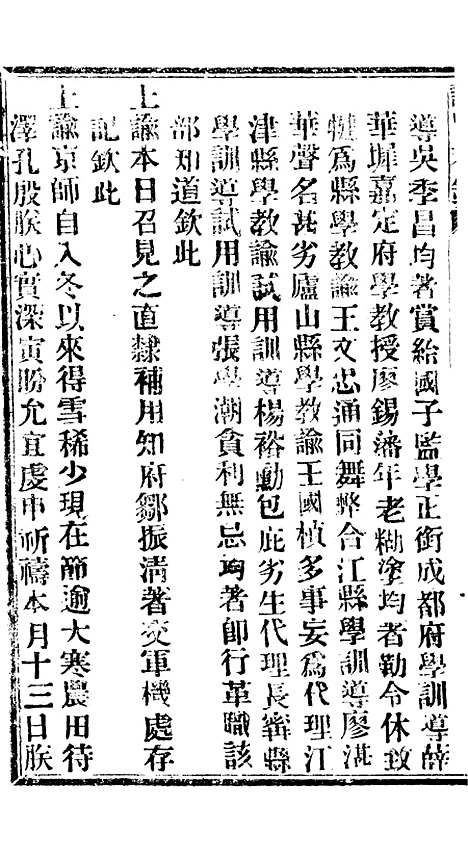 導吳季昌均著賞給國子監學正銜成都府學訓導薛
華墀嘉定府學教授廖錫藩年老糊塗均著勒令休致
犍爲縣學教諭王文忠通同舞弊合江縣學訓導廖湛
華聲名甚劣廬山縣學教諭王國楨多事妄爲代理江
津縣學教諭試用訓導楊裕勳包庇劣生代理長寗縣
學訓導試用訓導張學潮貪利無忌均著卽行革職該
部知道欽此
上諭本日召見之直隸補用知府鄒振淸著交軍機處存
記欽此
上諭京師自入冬以來得雪稀少現在節逾大寒農田待
澤孔殷朕心實深寅盼允宜虔申祈禱本月十三日朕